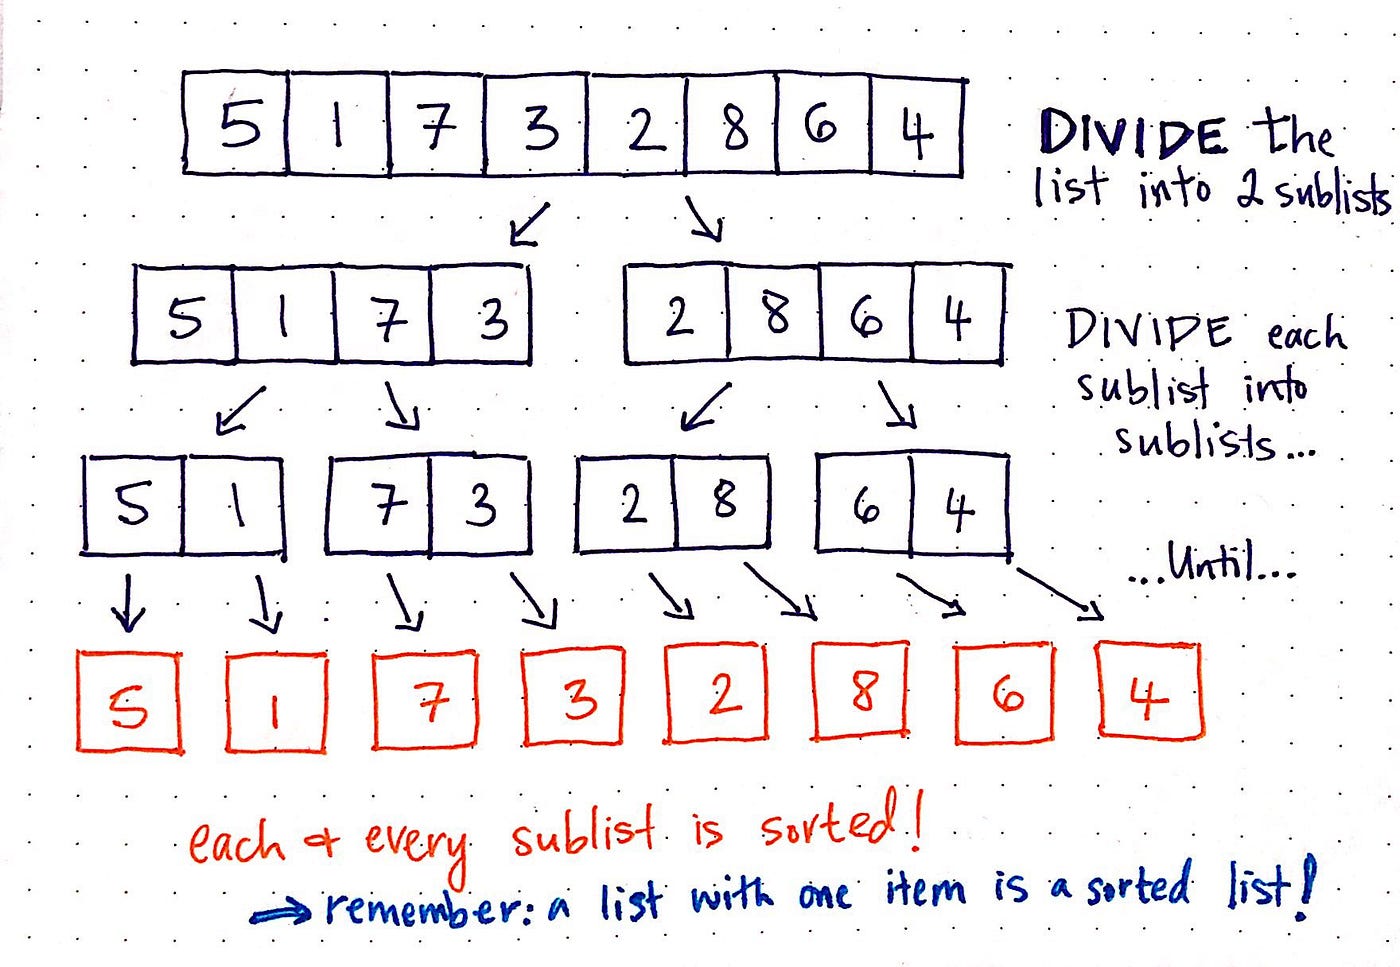 5 1 7 3 2 8 6 4
DIVIDE the
list into 2 sublists
5 1 7 3
2 8 6 4
DIVIDE each
sublist into
sublists...
5 1
7 3
2 8
6 4
...Until...
5
1
7
3
2
8
6
4
each & every sublist is sorted!
⇒ remember: a list with one item is a sorted list!